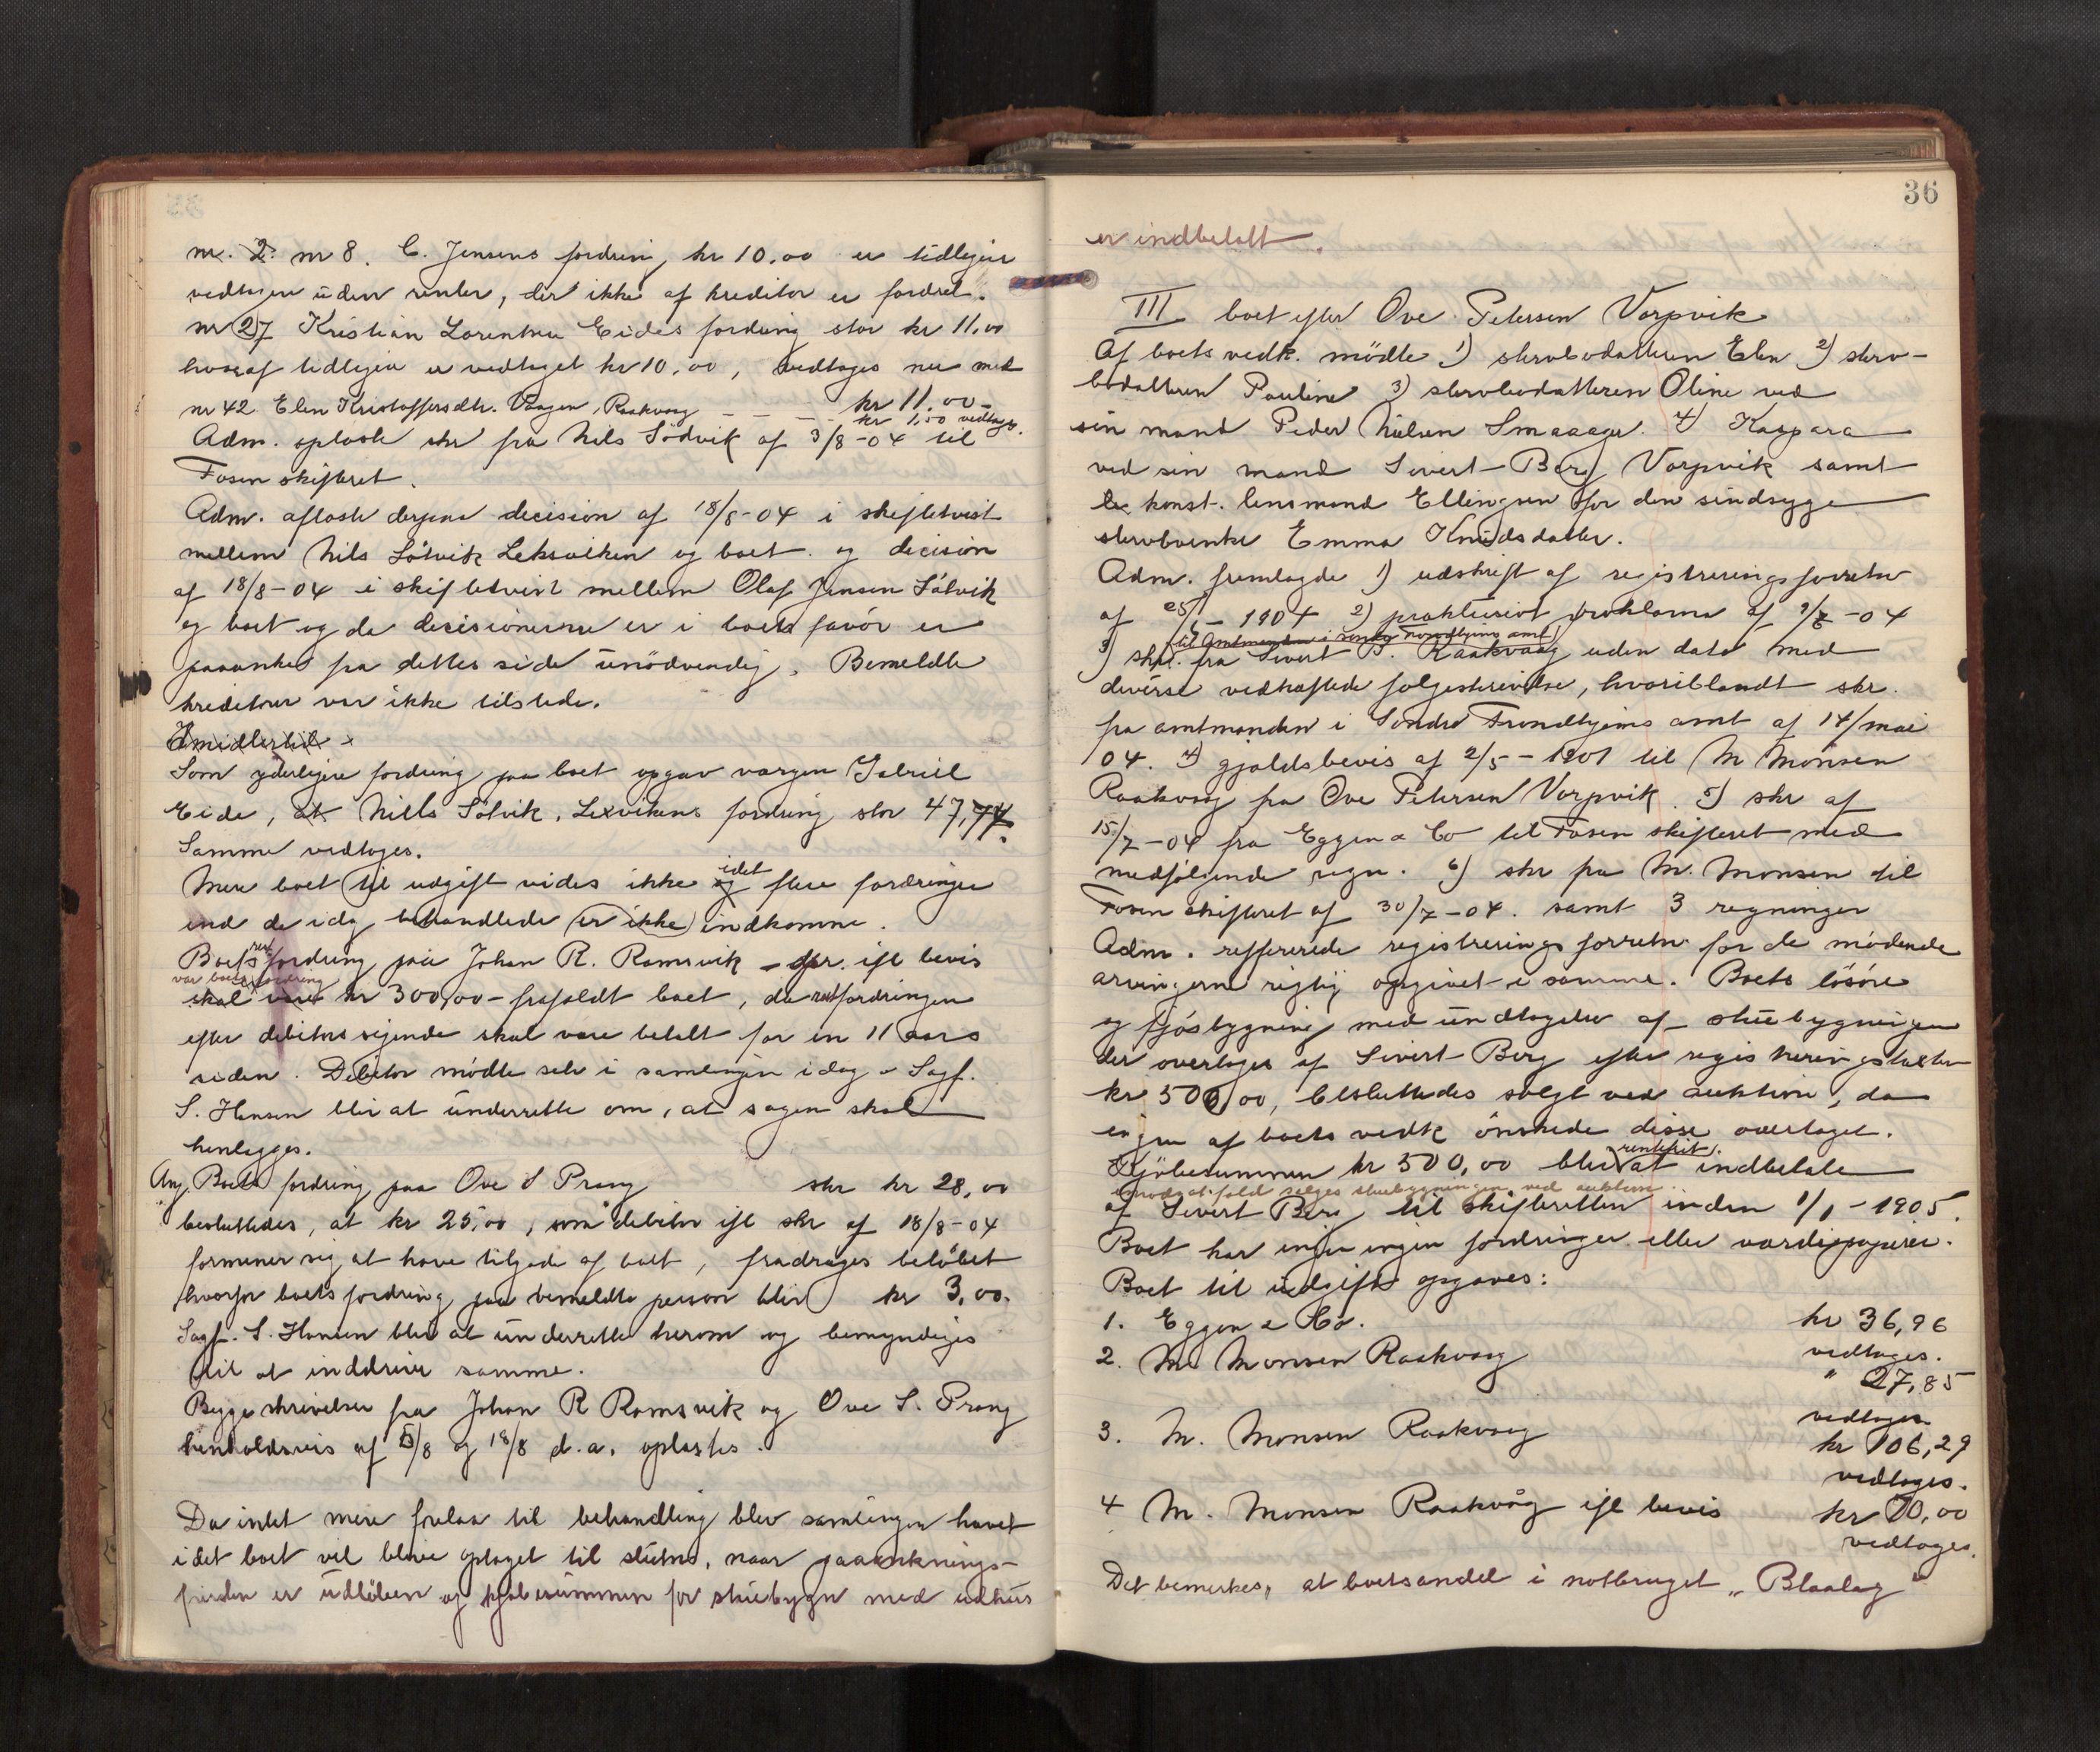 nr. 2. nr 8. C. Jensens fordring kr 10.00 er tidligere
vedtagen uden renter, der ikke af kreditor er fordret.
nr 27 Kristian Lorentsen Eides fordring stor kr 11.00
hvoraf tidligere er vedtaget kr 10.00, vedtages nu med
kr 11.00-
nr 42 Elen Kristoffersdtr. Vaagen, Raakvaag - - - kr 1,50 vedtages.
Adm. oplæste skr fra Nils Södvik af 3/8-04 til
Fosen skifteret.
Adm. afsagde derpaa decision af 18/8-04 i skiftetvist
mellem Nils Sölvik Leksviken og boet og decision
af 18/8-04 i skiftetvist mellem Olaf Jensen Sölvik
og boet og da decisionerne er i boets favör er
paaanke fra dettes side unödvendig. Bemeldte
kreditorer var ikke tilstede.
Imidlertid
Som yderligere fordring paa boet opgav værgen Gabriel
Eide, at Nills Sölvik, Lexvikens fordring stor 47,74.
Samme vedtages.
Mere boet til udgift vides ikke og idet flere fordringer
end de idag behandlede er ikke indkomne.
Boets restfordring paa Johan R. Ramsvik - ifl bevis
var boets fordring
skal være kr 300,00 - frafaldt boet, da restfordringen
efter debitors sigende skal være betalt for en 11 aars
siden. Debitor mödte selv i samlingen idag. Sagf.
S. Hansen blir at underrette om, at sagen skal
henlegges.
Ang. Boets fordring paa Ove S Prang skr kr 28,00
besluttedes, at kr 25,00, som debitor ifl skr af 18/8-04
formener sig at have tilgode af boet, fradrages belöbet
hvorfor boets fordring paa bemeldte person blir kr 3,00.
Sagf. S. Hansen blir at underrette herom og bemyndiges
til at inddrive samme.
Begge skrivelser fra Johan R Ramsvik og Ove S. Prang
henholdsvis af 5/8 og 18/8 d.a. oplæstes.
Da intet mere forelaa til behandling blev samlingen hævet
idet boet vil blive optaget til slutn. naar paaanknings-
fristen er udlöben og kjöbesummen for stuebygn med udhus
36
er indbetalt.
III boet efter Ove Petersen Vorpvik
Af boets vedk. mödte 1) stervbodatteren Elen 2) sterv-
bodatteren Pauline 3) stervbodatteren Oline ved
sin mand Peder Nielsen Smaaage. 4) Kaspara
ved sin mand Sivert Berg Vorpvik samt
konst. lensmand Ellingsen for den sindsyge
stervboenke Emma Knudsdatter.
Adm. fremlagde 1) udskrift af registreringsforretn
af 25/1-1904 2) proklama af 9/6-04
til Amtmanden i Söndre Trondhjems amt
3) skr. fra Sivert B. Raakvaag uden dato med
diverse vedhæftede fölgeskrivelse, hvoriblandt skr.
fra amtmanden i Söndre Trondhjems amt af 14/mai
04. 4) gjældsbevis af 2/5-1901 til M Monsen
Raakvaag fra Ove Petersen Vorpvik. 5) skr af
15/7-04 fra Eggen & Co til Fosen skifteret med
medfölgende regn. 6) skr fra M. Monsen til
Fosen skifteret af 30/7-04. samt 3 regninger
Adm. reffererede registreringsforretn for de mödende
arvingerne rigtig opgivet i samme. Boets lösöre
og fjösbygning med undtagelse af stuebygningen
der overtages af Sivert Berg efter registreringstaxten
kr 500,00, besluttedes solgt ved auktion, da
ingen af boets vedk önskede disse overtaget.
Kjöbesummen kr 500,00 blir rentefrit at indbetale
i modsat fald sælges stuebygningen ved auktion
af Sivert Berg til skifteretten inden 1/1-1905.
Boet har ingen fordringer eller værdipapirer.
Boet til udgift opgaves:
1. Eggen & Co. kr 36,96
vedtages.
2. M. Monsen Raakvaag " 27,85
vedtages
3. M. Monsen Raakvaag kr 106,29
vedtages.
4 M. Monsen Raakvåg ifl bevis kr 70,00
vedtages.
Det bemerkes, at boets andel i notbruget „Blaalag"